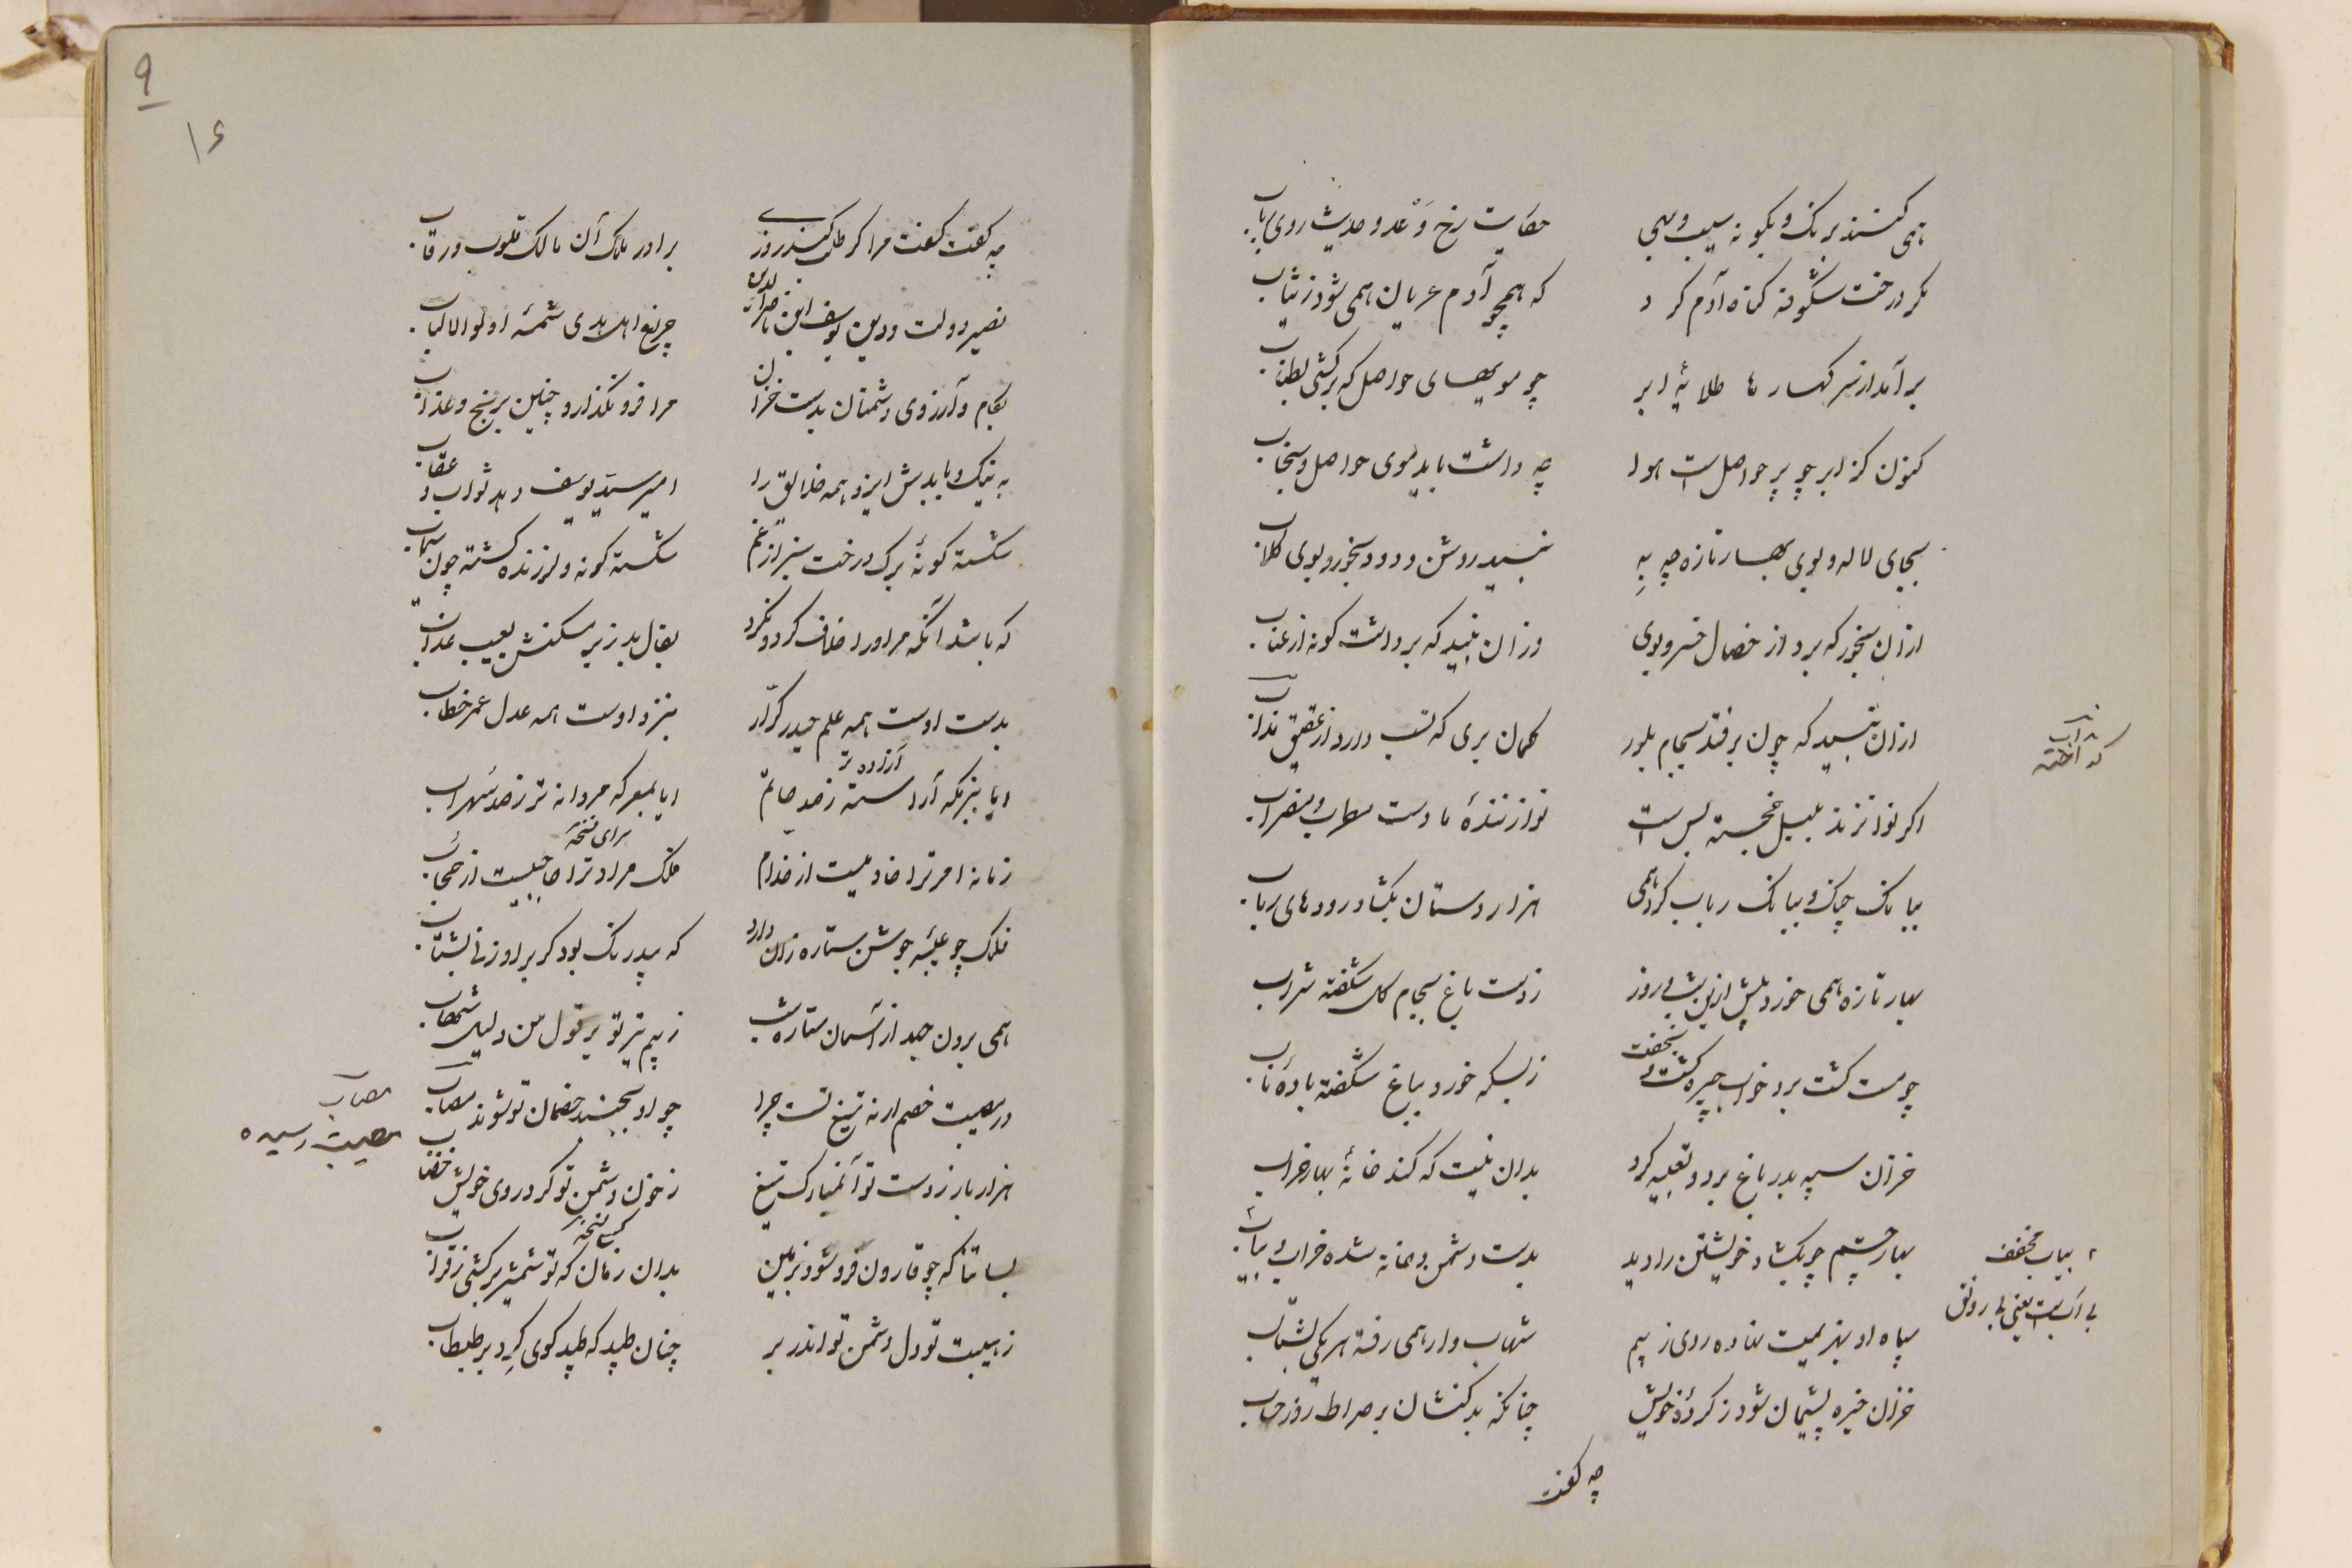 همی کنند برنگ و بگونه سیب و بهی حکایت رخ وَعْد و حدیث روی رباب
مگر درخت شگوفه گناه آدم کرد که همچو آدم عریان همی شود ز ثیاب
برآمد از سر کهسارها طلایهٔ ابر چو مویهای حواصل که برکشی بطناب
کنون کز ابر چو پر حواصل است هوا چه داشت باید موی حواصل و سنجاب
بجای لاله و بوی بهار تازه چه بِه نبید روشن و دود بخور و بوی گلاب
ازان بخور که برد از خصال خسرو بوی وزان نبید که برداشت گونه از عناب
ازان نبید که چون برفتد بجام بلور گمان بری که نسب دارد از عقیق مذاب
مذاب
گداخته
اگر نوا نزند بلبل خجسته بس است نوازنندهٔ ما دست مطرب و مضراب
ببانگ چنگ و ببانگ رباب کرد همی هزار دستان بگشاد رودهای رباب
بهار تازه همی خورد پیش ازین شب و روز ز دست باغ بجام گل شگفته شراب
چو مست گشت برو خواب چیره گشت و بخفت ز بسکه خورد بباغ شگفته بادهٔ ناب
خزان سپه بدر باغ برد و تعبیه کرد بدان نیت که کند خانهٔ بهار خراب
بهار چشم چو بگشاد خویشتن را دید بدست دشمن و خانه شده خراب و بیاب
بیاب مخفف
بی آب است یعنی بی رونق
سپاه او بهزیمت نهاده روی ز بیم شهاب وار همی رفته هر یکی بشتاب
خزان خیره پشیمان شود ز کردهٔ خویش چنانکه بدکنشان بر صراط روز حساب
چه گفت
۹
۱۶
چه گفت گفت مرا گر طلب کنند روزی برادر ملک آن مالک قلوب و رقاب
نصیر دولت و دین یوسف ابن ناصر الدین چراغ اهل هدی شمع اولو الالباب
بکام و آرزوی دشمنان بدست خزان مرا فرو نگذارد چنین برنج و عذاب
به نیک و بد بدهش ایزد همه خلایق را امیر سید یوسف دهد ثواب و عقاب
شگسته گونهٔ برگ درخت سبز از غم شگسته گونه و لرزنده گشته چون سیماب
که باشد آنکه مر او را خلاف کرد و نکرد
بدست اوست همه علم حیدر کرّار بنزد اوست همه عدل عمر خطاب
ایا ببزمگه آراسته ز صد حاتم ایا بمعرکه مردانه تر ز صد سهراب
آزاده تر
زمانه امر ترا خادمیست از خدام فلک مراد ترا حاجبیست از حجاب
برای نسخه
فلک چو غیبهٔ جوشن ستاره زان دارد که پدرنگ بود گر برو زنی بشتاب
همی برون جهد از آسمان ستاره شب ز بیم تیر تو بر قول من دلیل شهاب
در مصیبت خصم ار نه تیغ تست چرا چو او بجنبد خصمان تو شوند مصاب
مصاب
مصیبت رسیده
هزار بار ز دست تو آنمبارک تیغ ز خون دشمن تو کرد روی خویش خضاب
بسا تنا که چو قارون فرو شود بزمین بدان زمان که تو شمشیر برکشی ز قراب
کسی نسخه
ز هیبت تو دل دشمن تو اندر بر چنان طپد که طپد گوی گِرد بر طبطاب